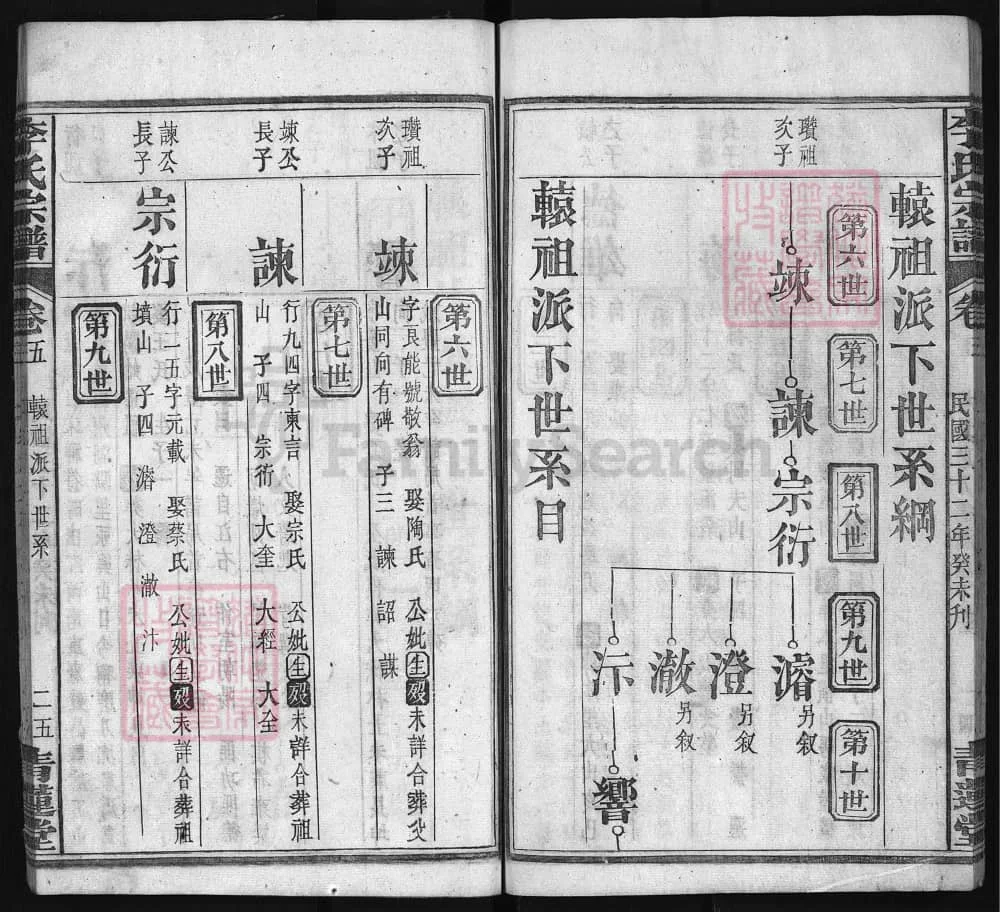 李氏宗譜
卷五
民國三十二年癸未刊
青蓮堂
轅祖派下世系綱
第六世
第七世
第八世
第九世
第十世
瓚祖次子
竦
諫
宗衍
濬 另叙
澄 另叙
澈 另叙
汴
響
轅祖派下世系目
第六世
瓚祖次子
竦
字長能號敬翁 娶陶氏 公妣生歿未詳合葬父
山同向有碑 子三 諫 詔 謀
第七世
竦公長子
諫
行九四字東言 娶宗氏 公妣生歿未詳合葬祖
山 子四 宗衍 大奎 大經 大全
第八世
諫公長子
宗衍
行一五字元載 娶蔡氏 公妣生歿未詳合葬祖
墳山 子四 濬 澄 澈 汴
第九世
李氏宗譜
卷五
轅祖派下世系
二五
青蓮堂
FamilySearch